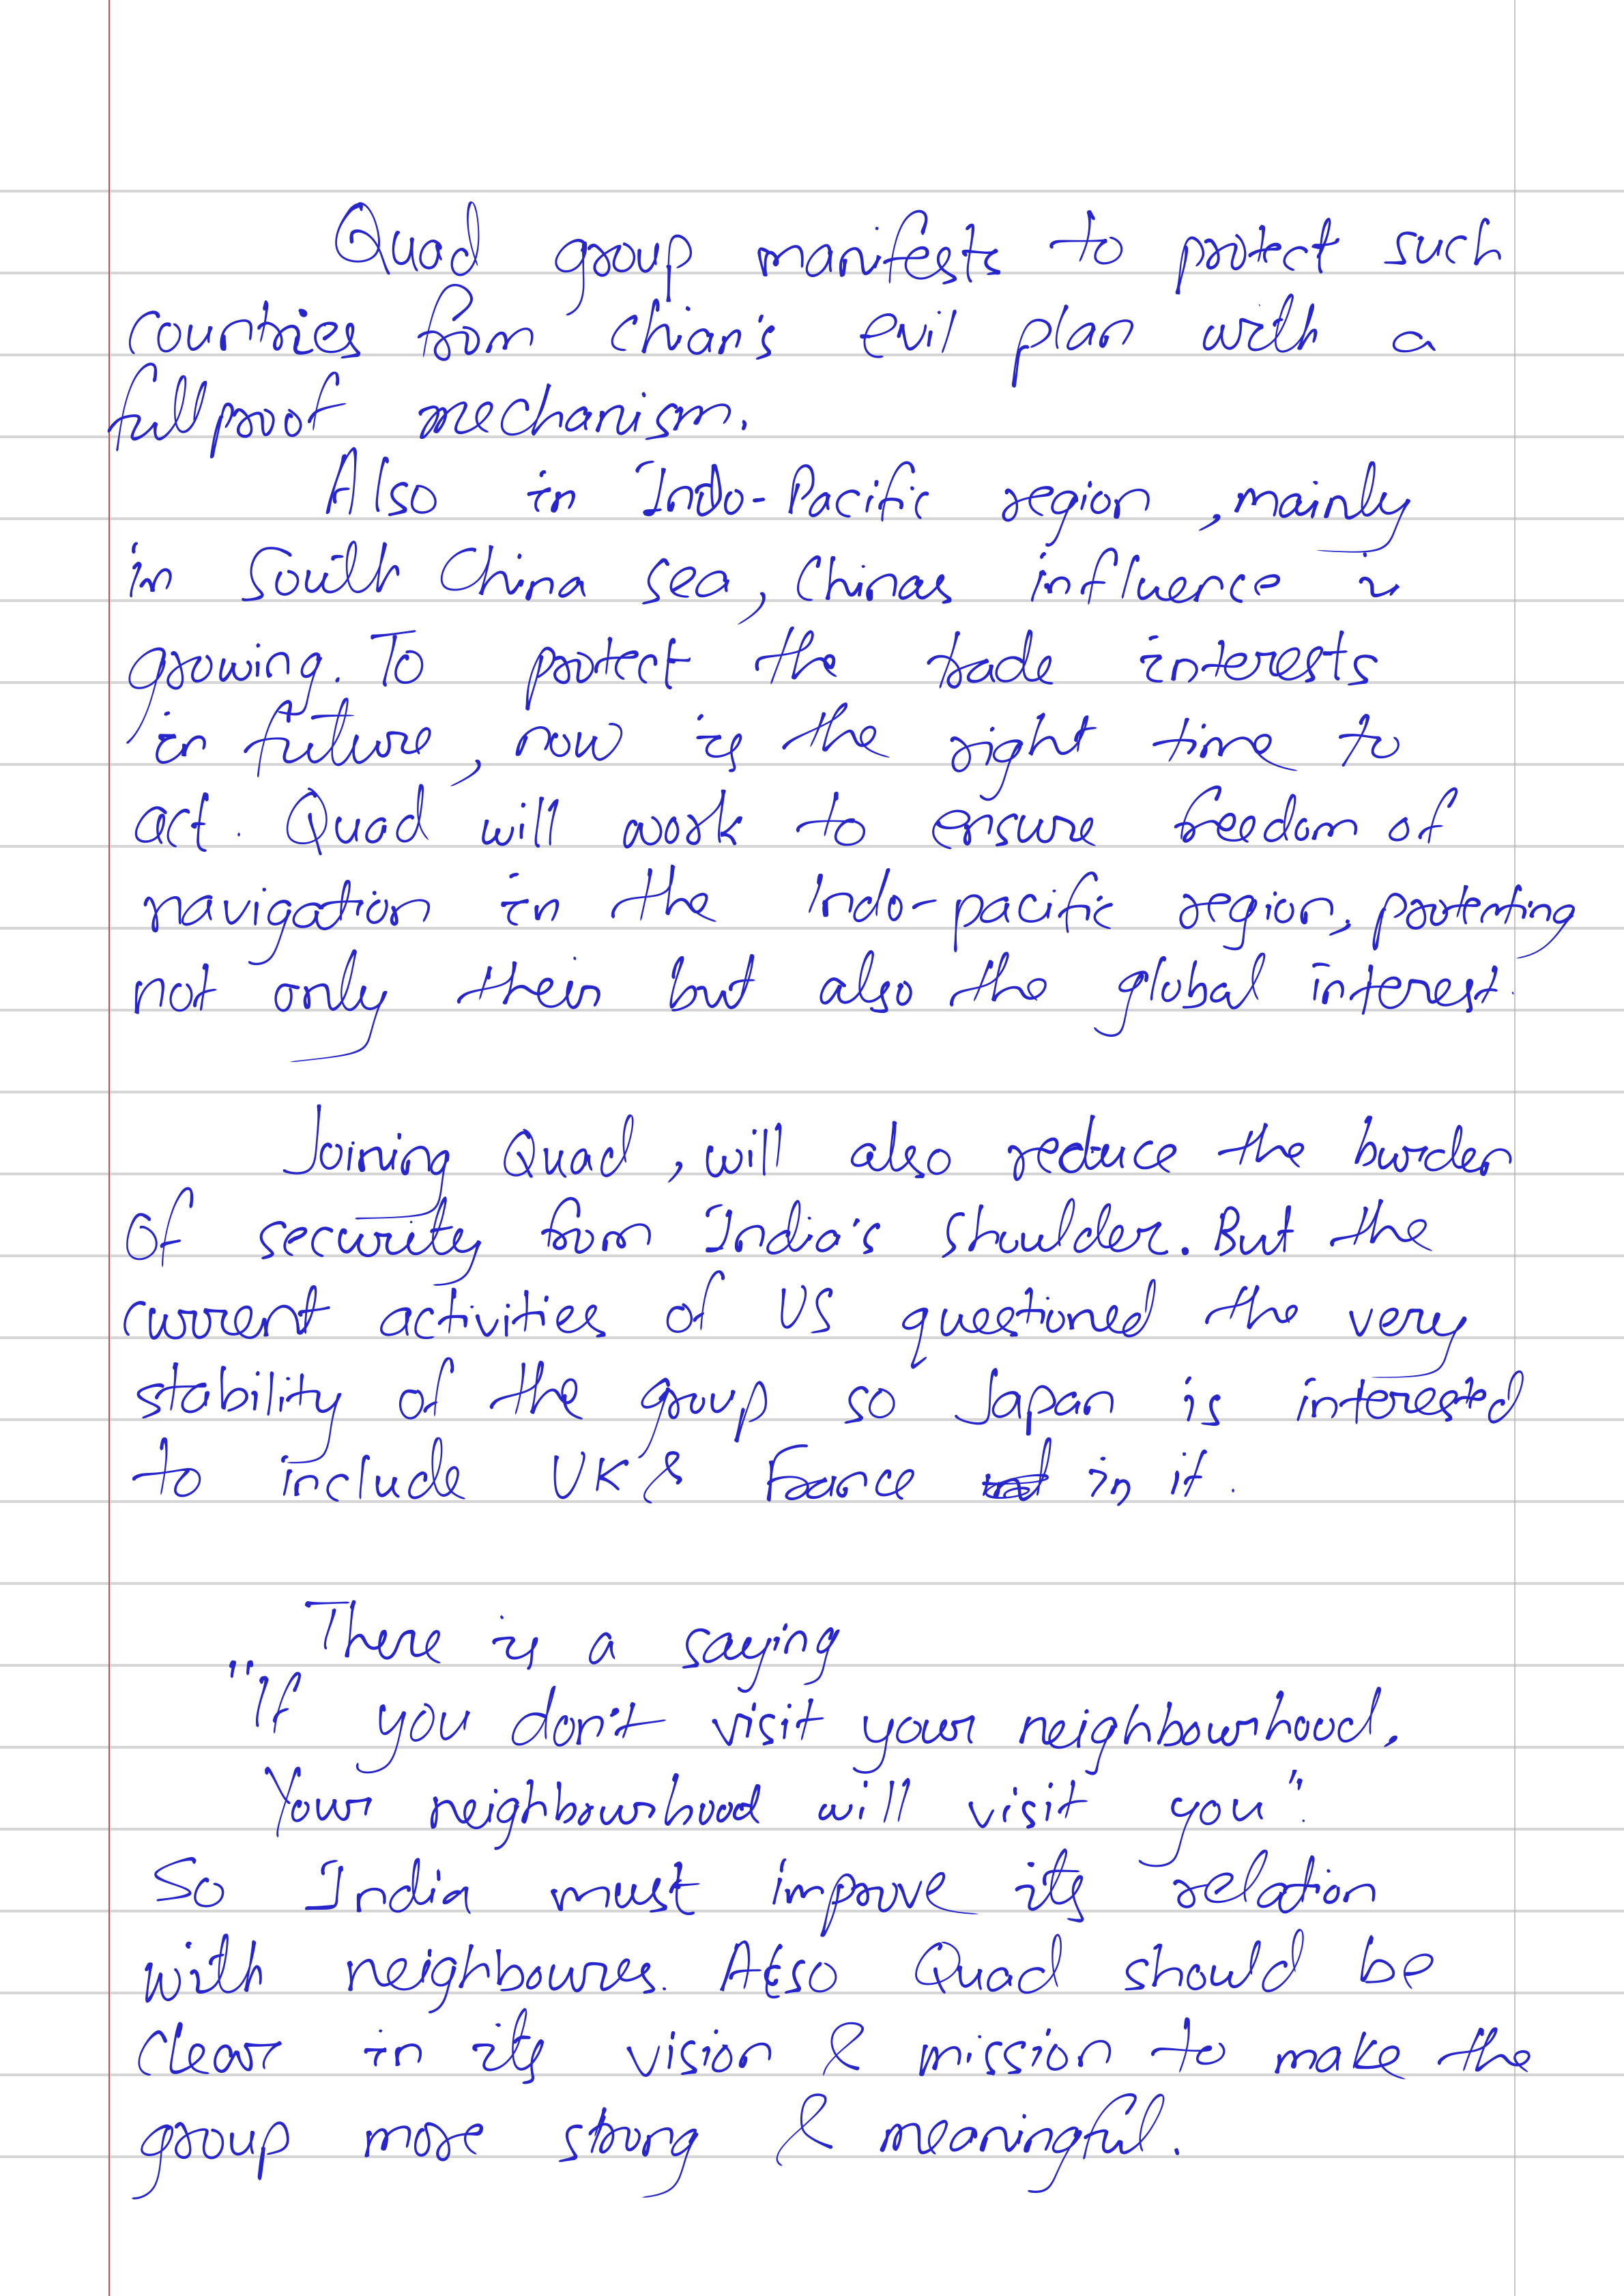 Quad group manifests to protect such
countries from Chian's evil plan with a
fullproof mechanism.
Also in Indo-Pacific region, mainly
in South China sea, Chinas influence is
growing. To protect the trade interests
in future, now is the right time to
act. Quad will work to ensure freedom of
navigation in the Indo-pacific region,
not only their but also the global interest.
Joining Quad, will also reduce the burden
of security from India's shoulder. But the
current activities of US questioned the very
stability of the group so Japan is interested
to include UK & France in it.
There is a saying
"If you don't visit your neighbourhood,
Your neighbourhood will visit you".
So India must improve its relation
with neighboures. Also Quad should be
clear in its vision & mission to make the
group more strong & meaningful.